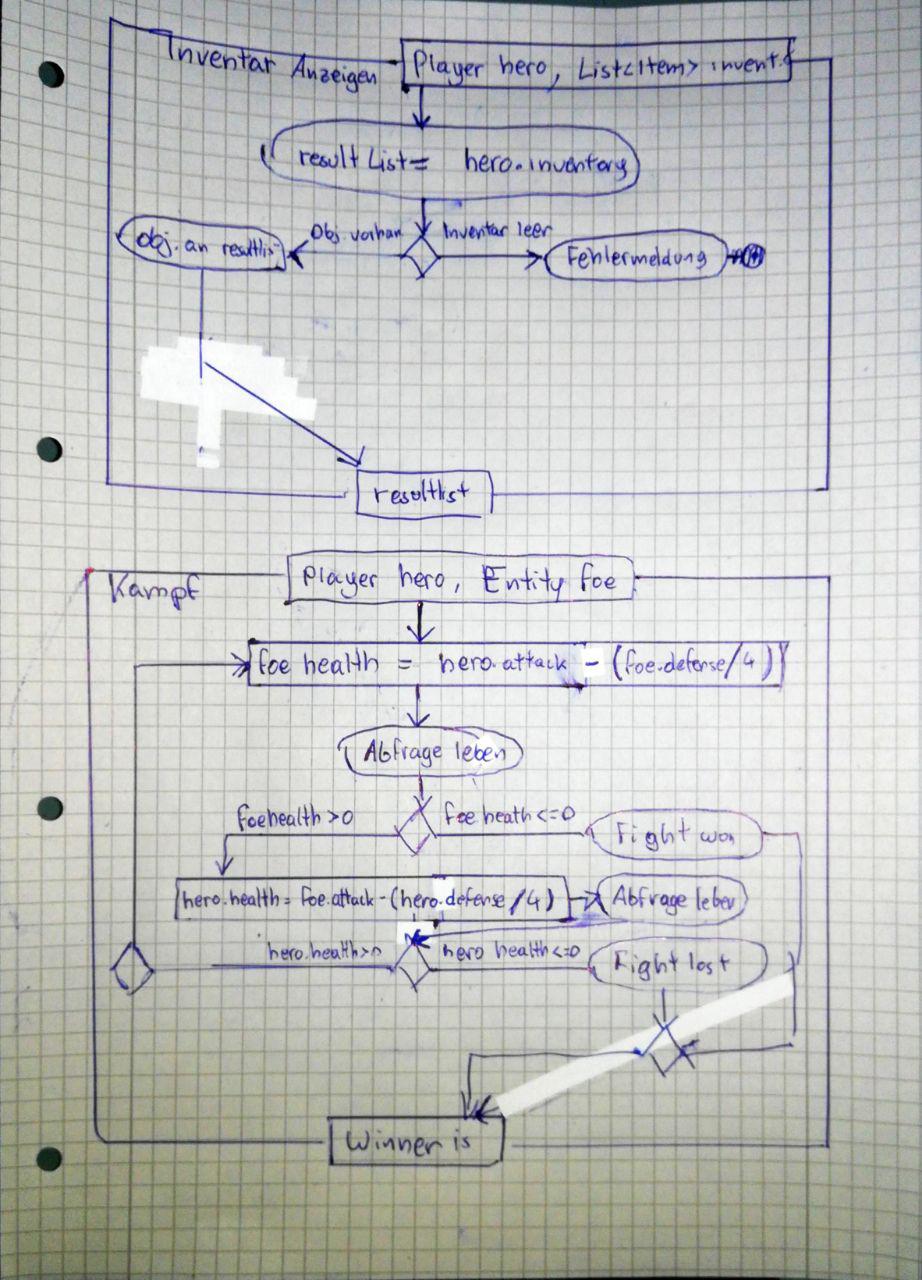 Inventar Anzeigen
Player hero, List<Item> invent.
result List= hero.inventory
Obj. vorhan
Inventar leer
Obj. an resultlis
Fehlermeldung
resultlist
Kampf
Player hero, Entity foe
foe health = hero.attack - (foe.defense/4)
Abfrage leben
foehealth >0
foe heath <=0
Fight won
hero.health= foe.attack-(hero.defense/4)
Abfrage leben
hero.health>0
hero health<=0
Fight lost
Winner is